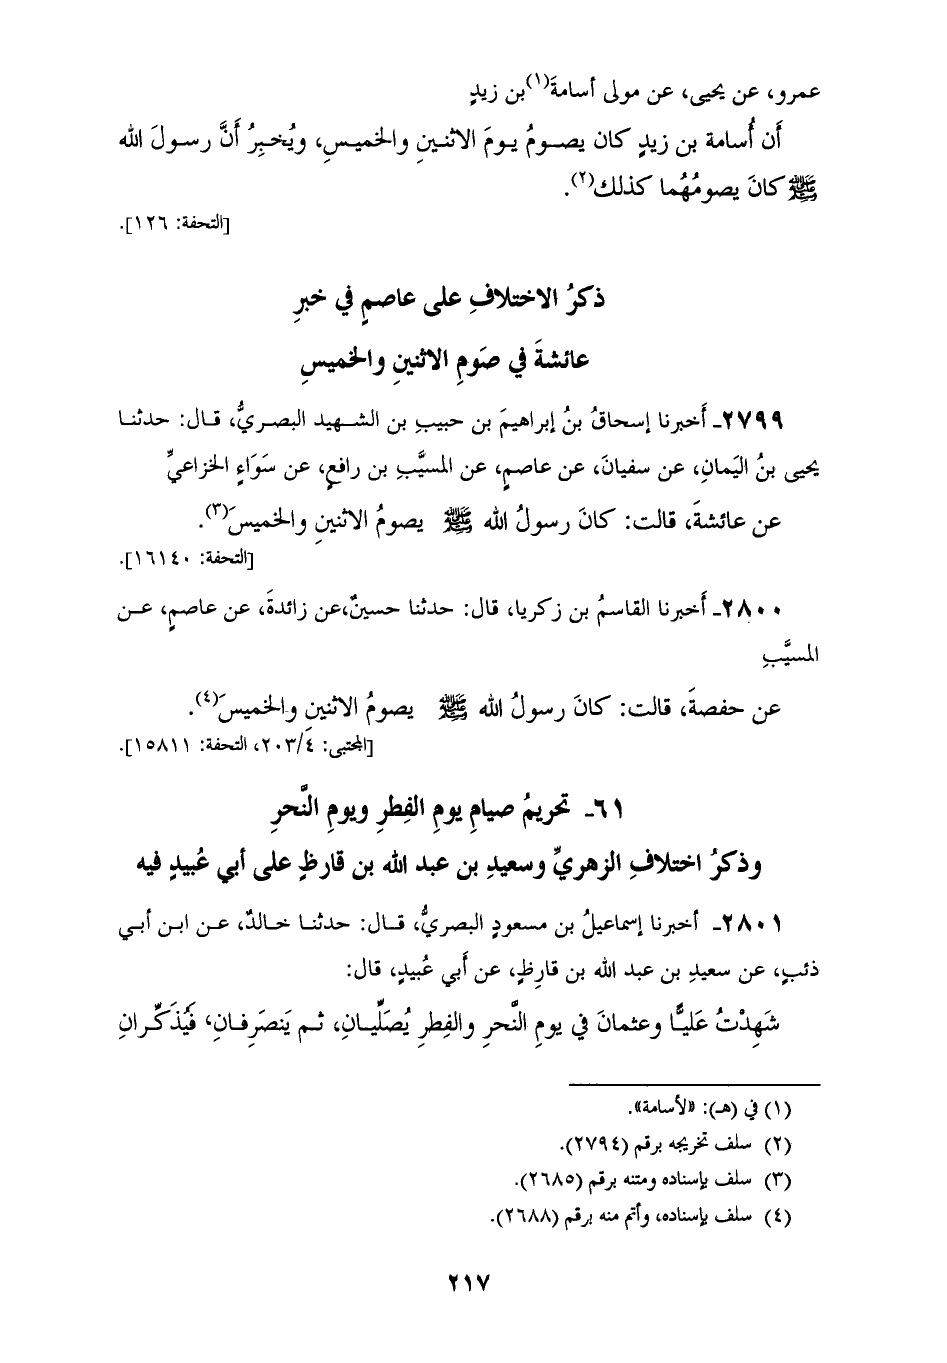 عمرو، عن يحيى، عن مولى أسامةَ(١) بن زيدٍ
أَن أُسامة بن زيدٍ كان يصومُ يومَ الاثنينِ والخميسِ، ويُخبِرُ أَنَّ رسولَ الله
ﷺ كانَ يصومُهُما كذلك(٢).
[التحفة: ١٢٦].
ذكرُ الاختلافِ على عاصمٍ في خبرِ
عائشةَ في صَومِ الاثنينِ والخميسِ
٢٧٩٩ـ أَخبرنا إسحاقُ بنُ إبراهيمَ بن حبيبِ بن الشهيد البصريُّ، قال: حدثنا
يحيى بنُ اليَمانِ، عن سفيانَ، عن عاصمٍ، عن المسيَّبِ بن رافعٍ، عن سَوَاءٍ الخزاعيِّ
عن عائشةَ، قالت: كانَ رسولُ الله ﷺ يصومُ الاثنينِ والخميسَ(٣).
[التحفة: ١٦١٤٠].
٢٨٠٠ـ أَخبرنا القاسمُ بن زكريا، قال: حدثنا حسينٌ،عن زائدةَ، عن عاصمٍ، عن
المسيَّبِ
عن حفصةَ، قالت: كانَ رسولُ الله ﷺ يصومُ الاثنينِ والخميسَ(٤).
[المجتبى: ٢٠٣/٤، التحفة: ١٥٨١١].
٦١ـ تحريمُ صيامِ يومِ الفِطرِ ويومِ النَّحرِ
وذكرُ اختلافِ الزهريِّ وسعيدِ بن عبد الله بن قارظٍ على أبي عُبيدٍ فيه
٢٨٠١ـ أخبرنا إسماعيلُ بن مسعودٍ البصريُّ، قال: حدثنا خالدٌ، عن ابن أبي
ذئبٍ، عن سعيدِ بن عبد الله بن قارِظٍ، عن أَبي عُبيدٍ، قال:
شَهِدْتُ عَليًّا وعثمانَ في يومِ النَّحرِ والفِطرِ يُصَلِّيانِ، ثم يَنصَرِفانِ، فَيُذَكِّرانِ
(١) في (هـ): «لأسامة».
(٢) سلف تخريجه برقم (٢٧٩٤).
(٣) سلف بإسناده ومتنه برقم (٢٦٨٥).
(٤) سلف بإسناده، وأتم منه برقم (٢٦٨٨).
٢١٧